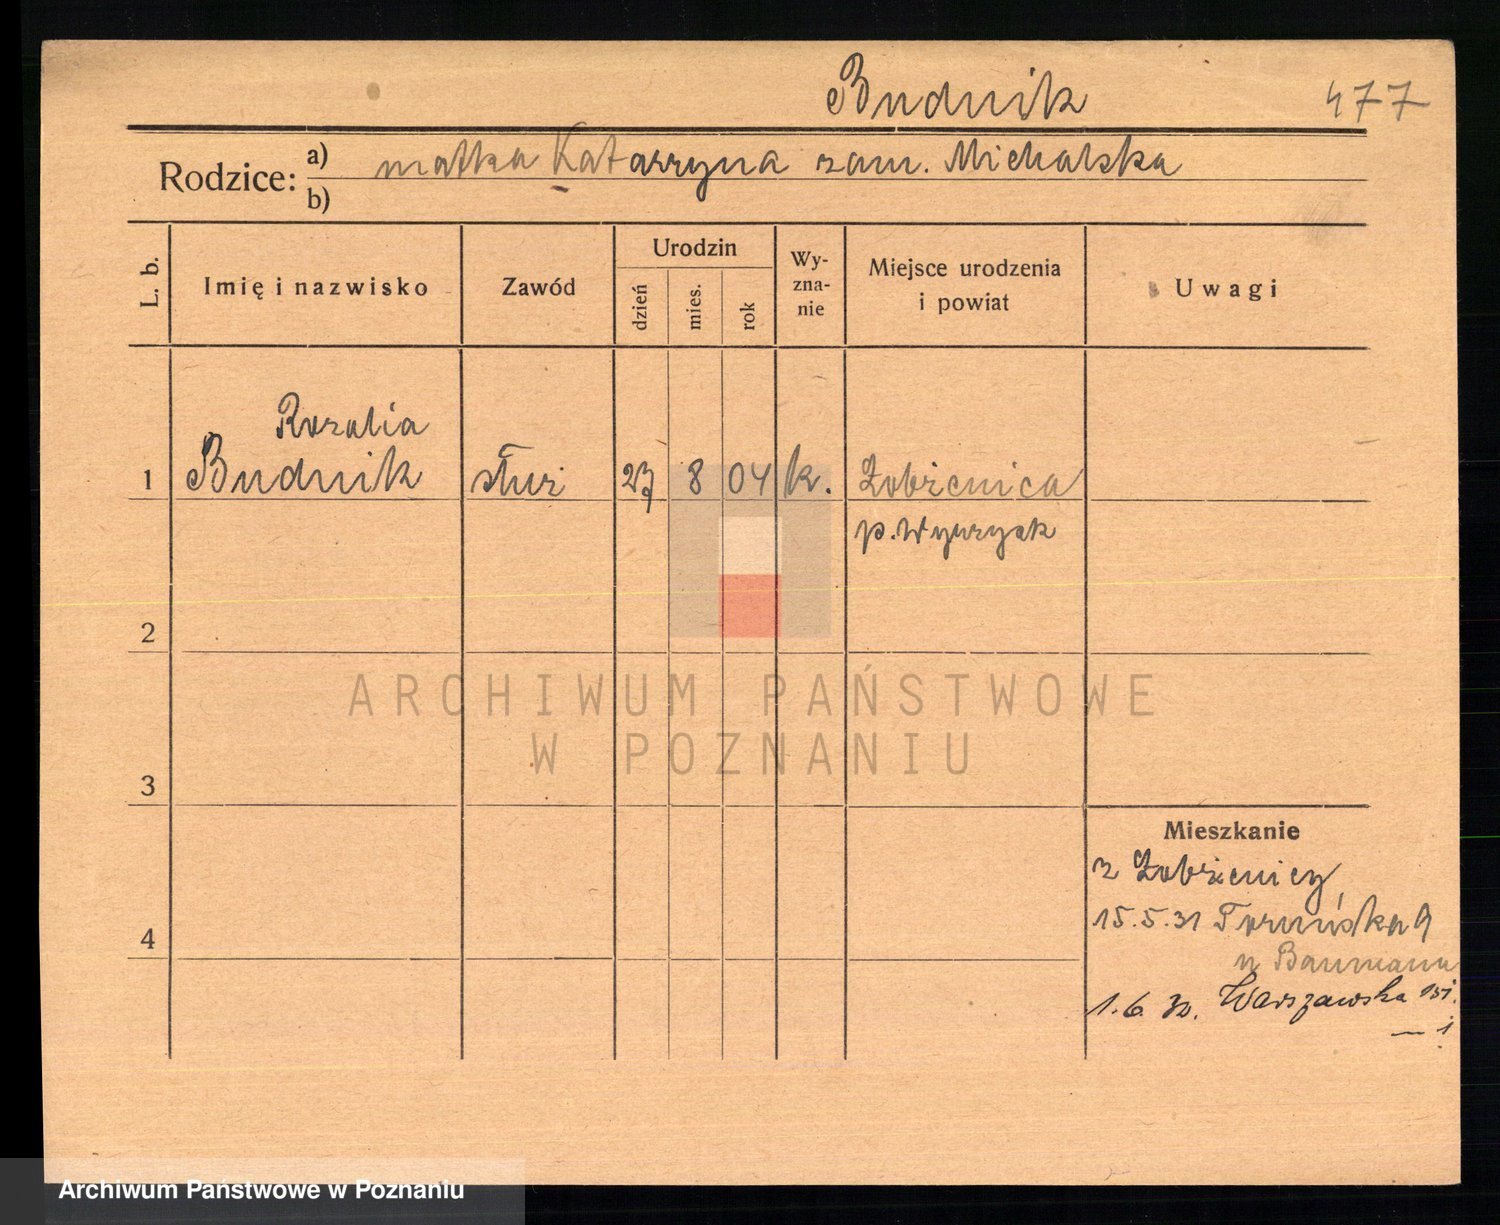 Budnik 477
Rodzice: a) matka Katarzyna zam. Michalska
b)
L. b. Imię i nazwisko Zawód Urodzin dzień mies. rok Wy-zna-nie Miejsce urodzenia i powiat Uwagi
Rozalia
1 Budnik służ 27 8 04 k. Łobżenica
p. Wyrzysk
2
ARCHIWUM PAŃSTWOWE
W POZNANIU
3
Mieszkanie
z Łobżenicy
15.5.31 Toruńska 9
4
u Baumann
1.6.32. Warszawska
Archiwum Państwowe w Poznaniu